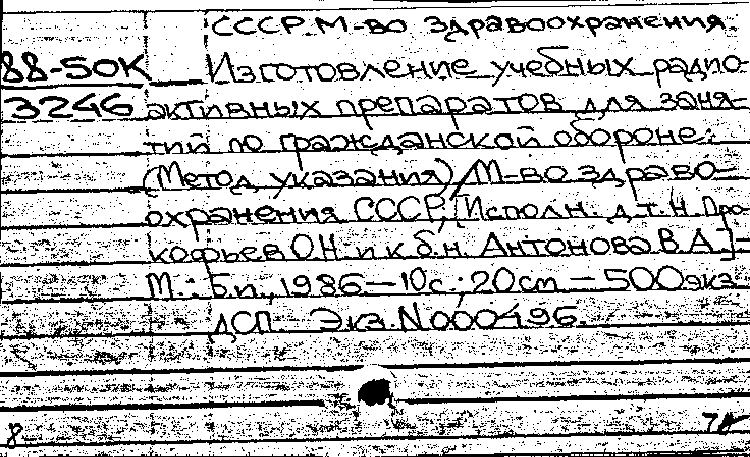 СССР. М-во здравоохранения.
88-50К Изготовление учебных радио-
3246 активных препаратов для заня-
тий по гражданской обороне:
(Метод. указания) / М-во здраво-
охранения СССР; [Исполн. д.т.н. Про-
кофьев О.Н. и к.б.н. Антонова В.А.]-
М.: Б.и., 1986 - 10с.; 20см - 500экз.
ДСП. Экз. N 000496.
8